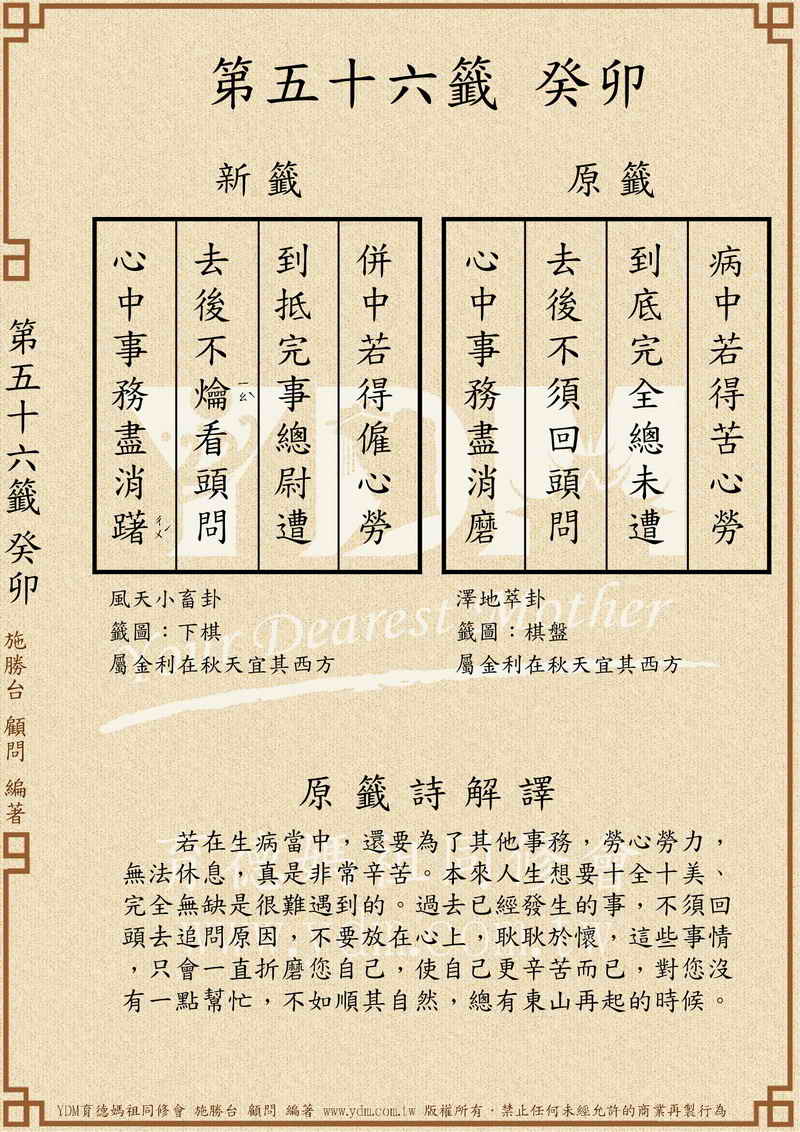 第五十六籤 癸卯
原籤
病中若得苦心勞
到底完全總未遭
去後不須回頭問
心中事務盡消磨
澤地萃卦
籤圖：棋盤
屬金利在秋天宜其西方
新籤
併中若得僱心勞
到抵完事總尉遭
去後不爚看頭問
ㄧㄠˋ
心中事務盡消躇
ㄔㄨˊ
風天小畜卦
籤圖：下棋
屬金利在秋天宜其西方
原籤詩解譯
若在生病當中，還要為了其他事務，勞心勞力，
無法休息，真是非常辛苦。本來人生想要十全十美、
完全無缺是很難遇到的。過去已經發生的事，不須回
頭去追問原因，不要放在心上，耿耿於懷，這些事情
，只會一直折磨您自己，使自己更辛苦而已，對您沒
有一點幫忙，不如順其自然，總有東山再起的時候。
第五十六籤 癸卯
施勝台 顧問 編著
YDM
Your Dearest Mother
育德媽祖同修會
YDM育德媽祖同修會 施勝台 顧問 編著 www.ydm.com.tw 版權所有．禁止任何未經允許的商業再製行為